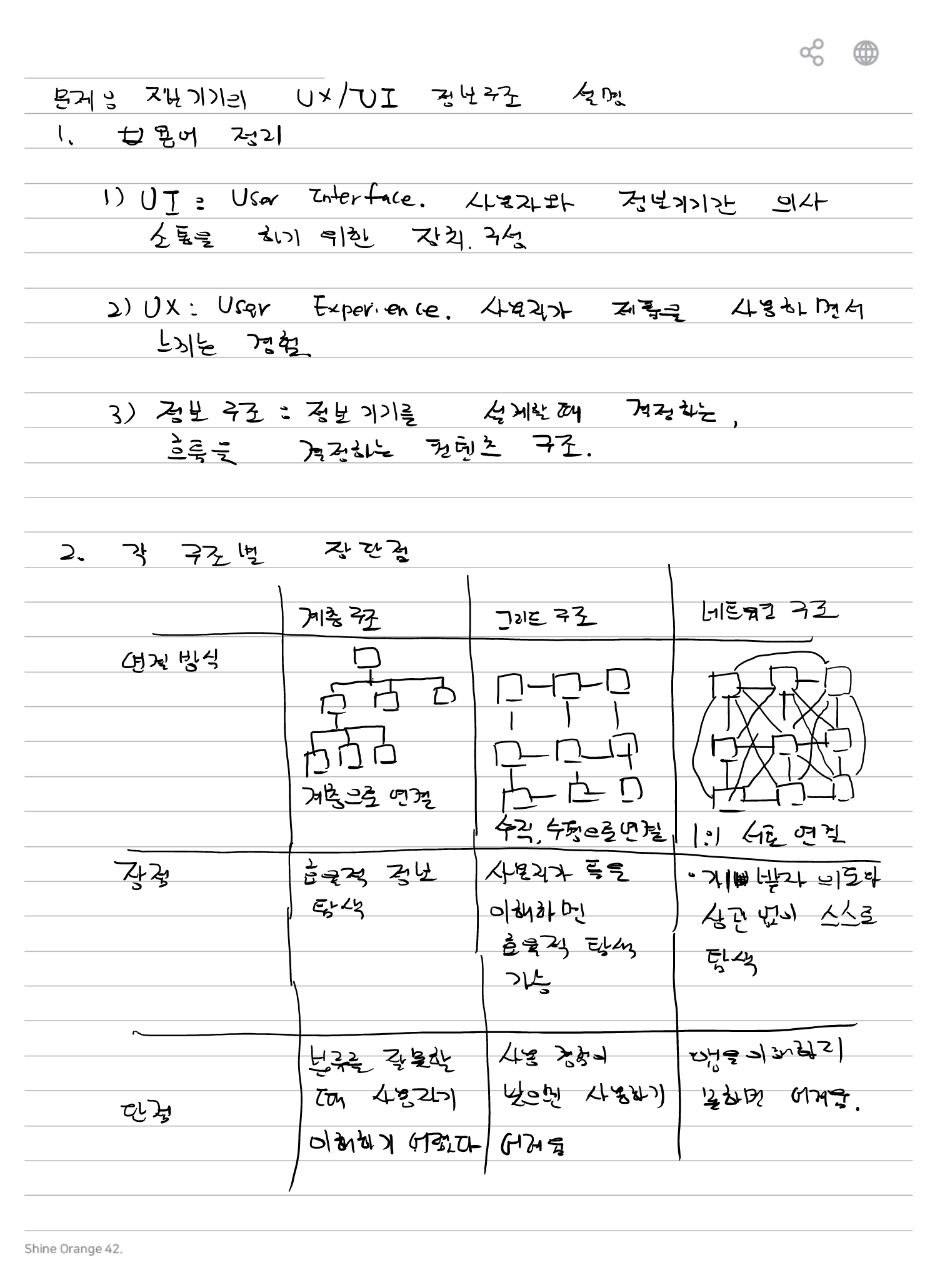 문제 정보기기의 UX/UI 정보구조 설명
1. 용어 정리
1) UI : User Interface. 사용자와 정보기기간 의사
소통을 하기 위한 장치. 구성
2) UX : User Experience. 사용자가 제품을 사용하면서
느끼는 경험.
3) 정보 구조 : 정보기기를 설계할 때 결정하는,
흐름을 결정하는 컨텐츠 구조.
2. 각 구조별 장단점
계층구조 그리드 구조 네트워크 구조
연결 방식
계층으로 연결
수직, 수평으로 연결
1:1 서로 연결
장점
효율적 정보
탐색
사용자가 틀을
이해하면
효율적 탐색
가능
· 개발자 의도와
상관 없이 스스로
탐색
단점
분류를 잘못할
때 사용자가
이해하기 어렵다
사용 경험이
낮으면 사용하기
어려움
맵을 이해하지
못하면 어려움.
Shine Orange 42.